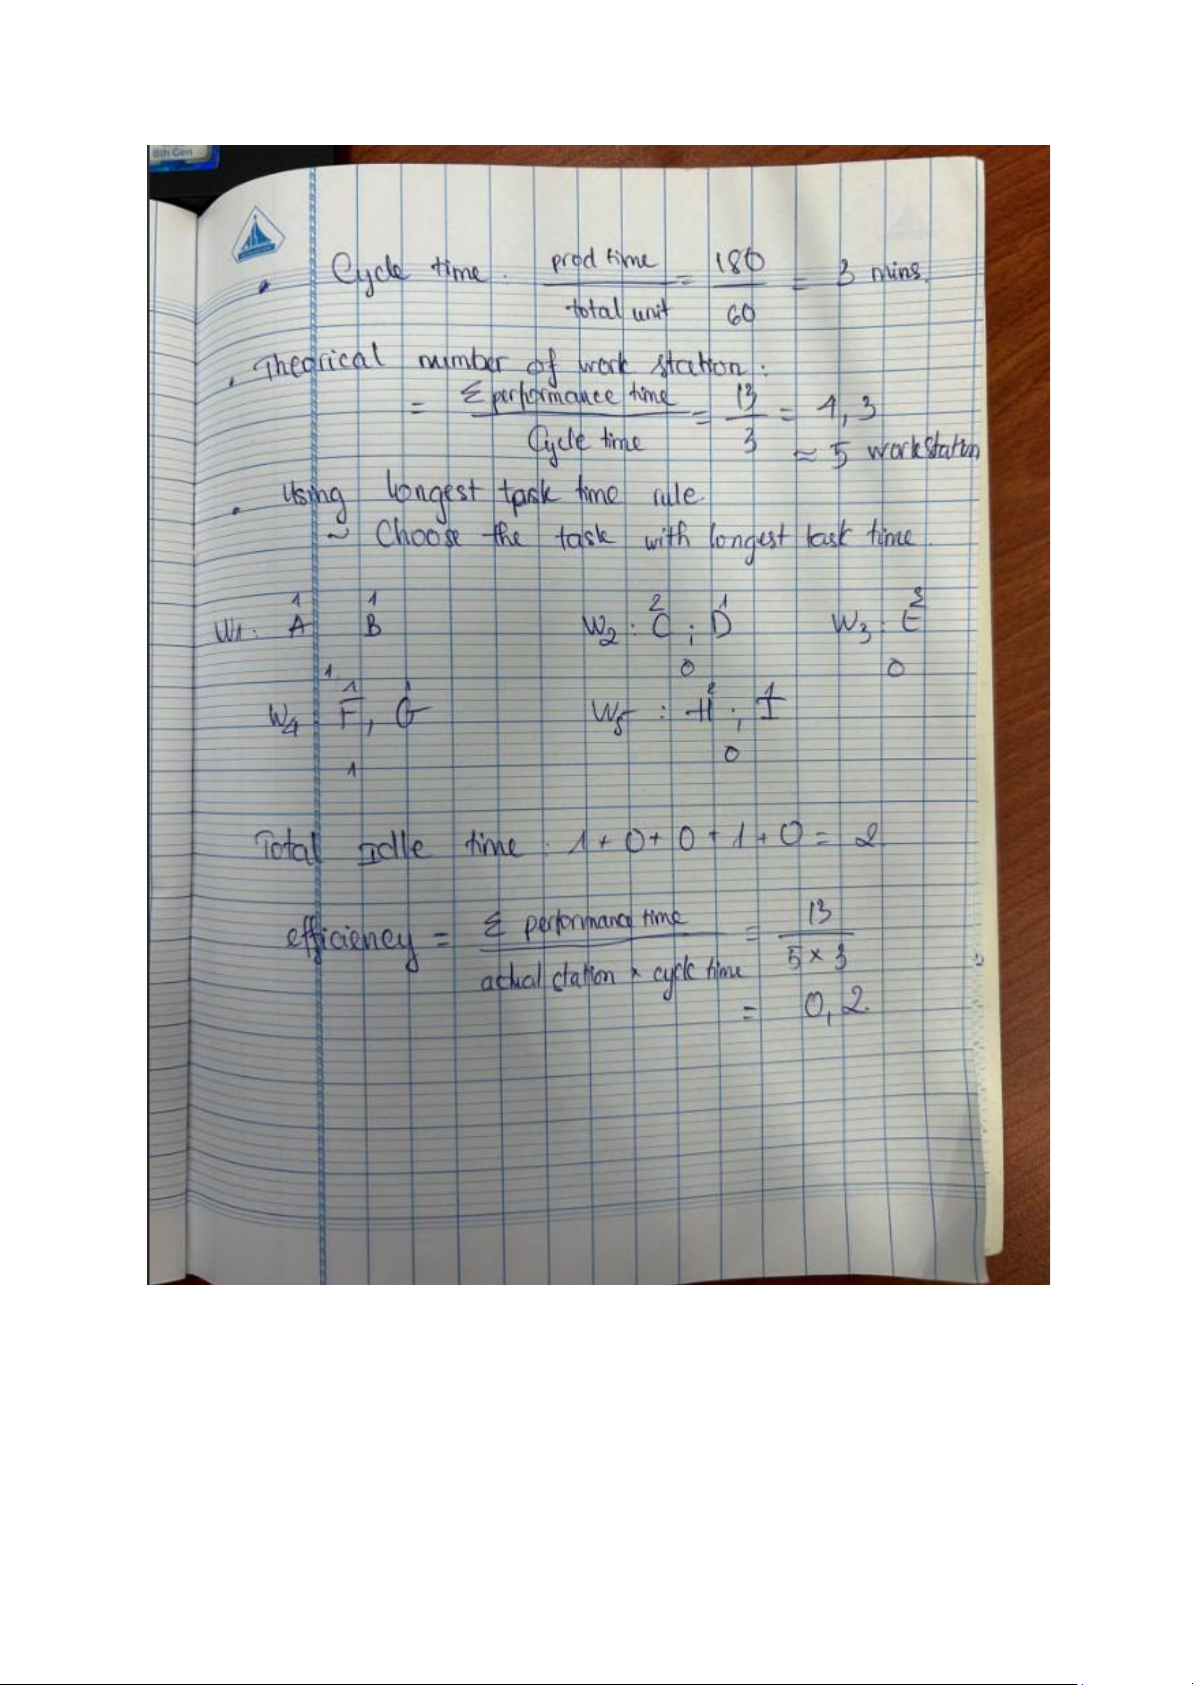 8th Gen
Cycle time : prod time / total unit = 180 / 60 = 3 mins.
. Theorical number of work station :
= Σ performance time / Cycle time = 13 / 3 = 4,3
≈ 5 workstation
. Using longest task time rule.
~ Choose the task with longest task time
1 1 2 1 3
W1: A B W2 : C ; D W3 : E
1 0 0
1 1 2 1
W4 : F, G W5 : H ; I
1 0
Total Idle time : 1 + 0 + 0 + 1 + 0 = 2
efficiency = Σ performance time / actual station × cycle time = 13 / 5 × 3
= 0,2.